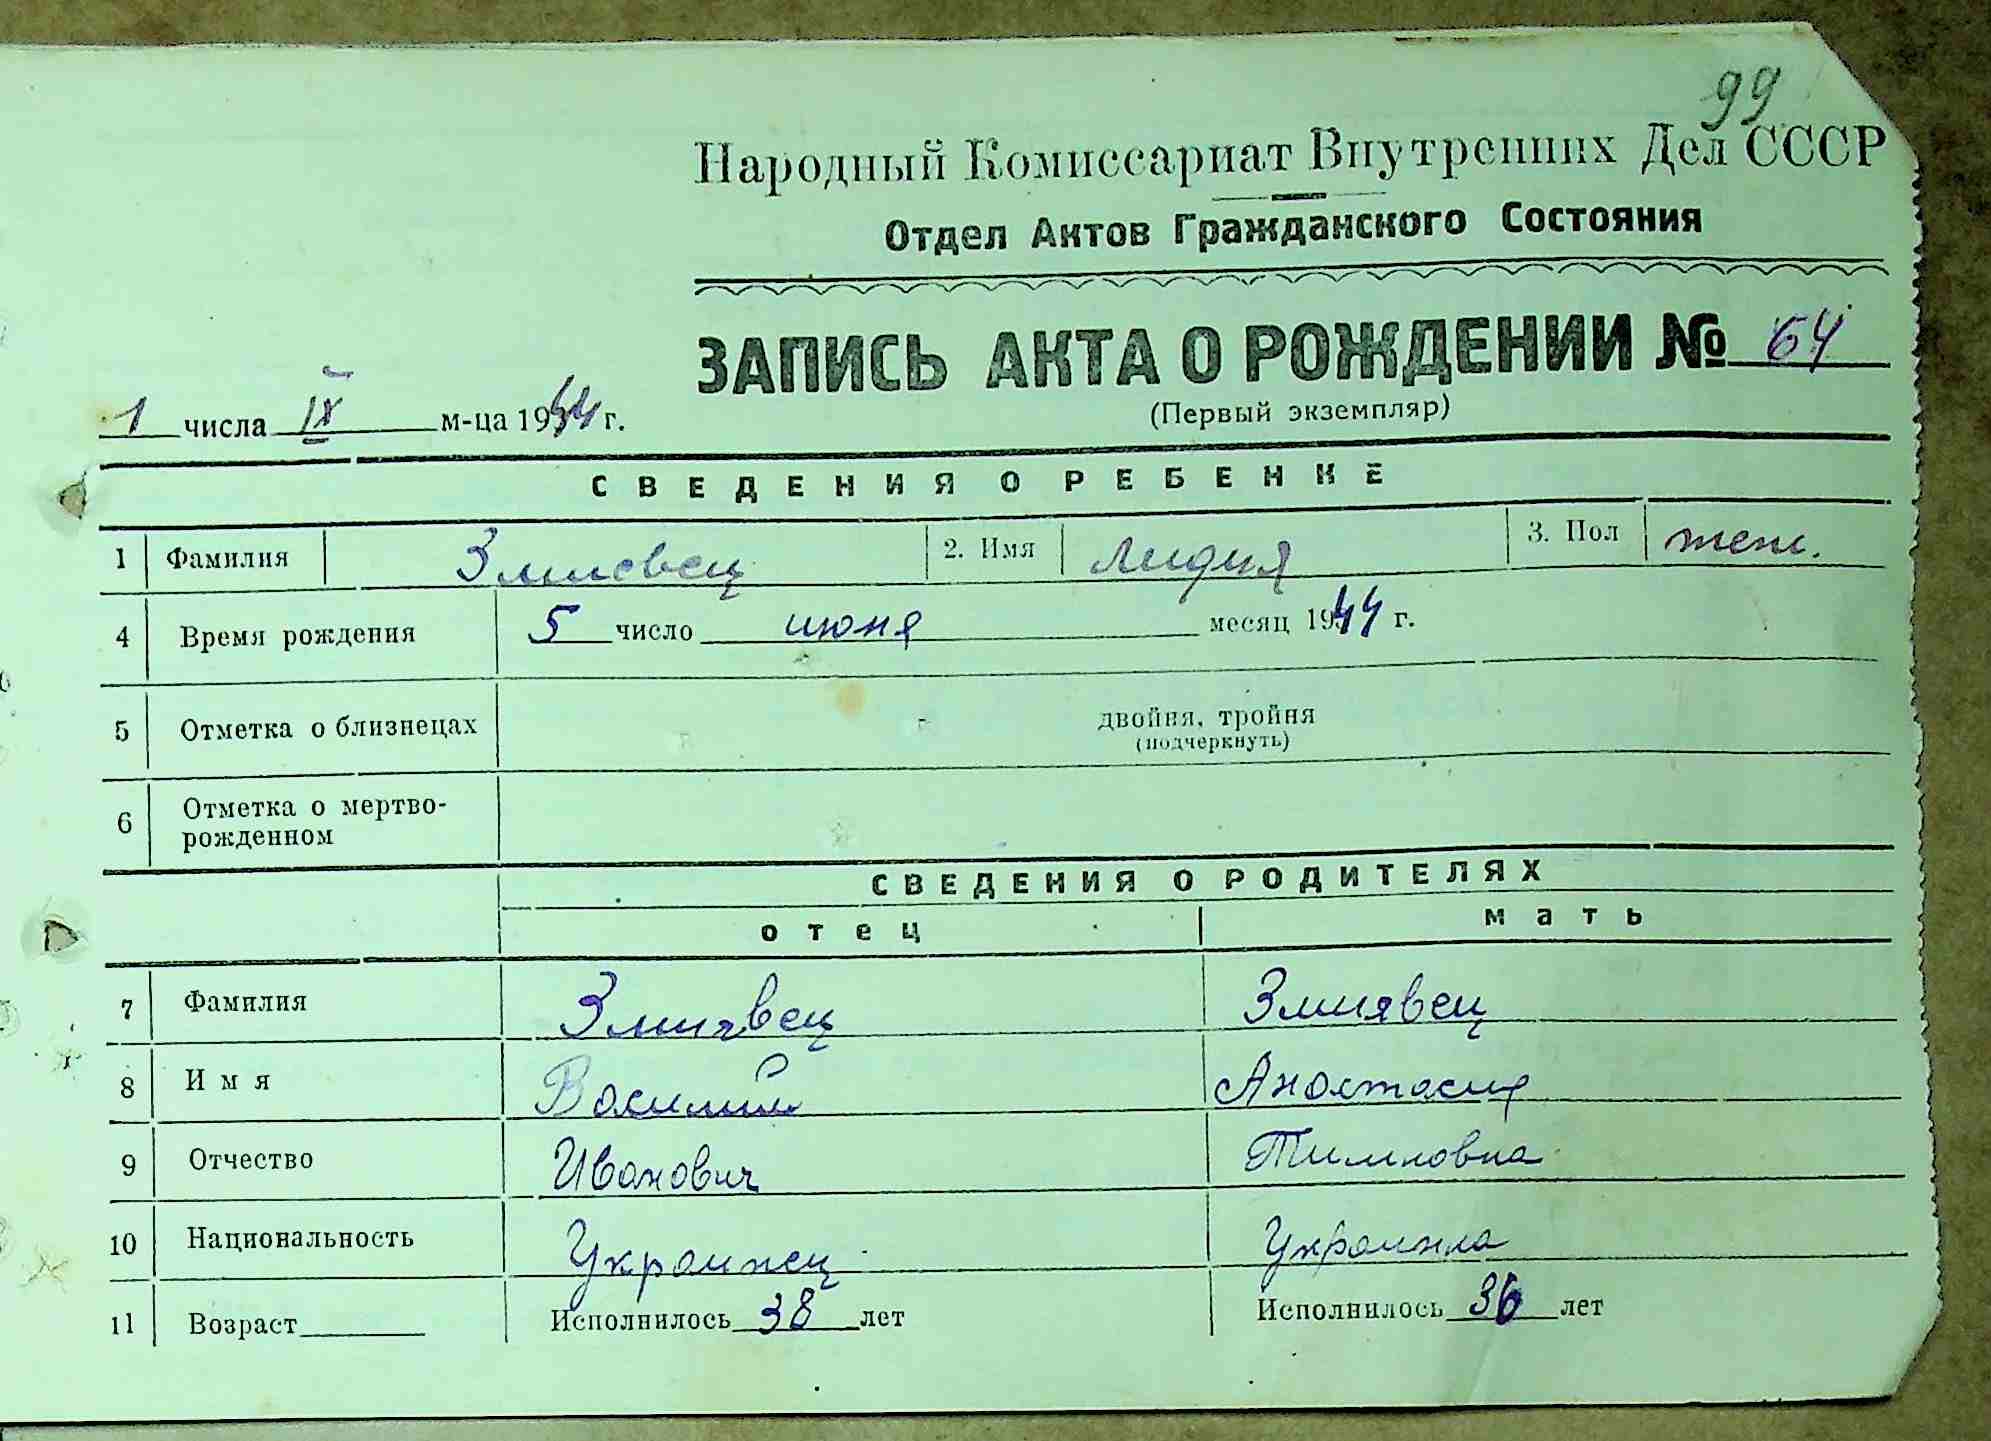 99
Народный Комиссариат Внутренних Дел СССР
Отдел Актов Гражданского Состояния
ЗАПИСЬ АКТА О РОЖДЕНИИ № 64
(Первый экземпляр)
1 числа IX м-ца 1944 г.
СВЕДЕНИЯ О РЕБЕНКЕ
1 Фамилия Змиевец 2. Имя Лидия 3. Пол жен.
4 Время рождения 5 число июня месяц 1944 г.
5 Отметка о близнецах - двойня, тройня
(подчеркнуть)
6 Отметка о мертво-
рожденном
СВЕДЕНИЯ О РОДИТЕЛЯХ
отец мать
7 Фамилия Змиявец Змиявец
8 Имя Василий Анастасия
9 Отчество Иванович Тимковна
10 Национальность Украинец Украинка
11 Возраст Исполнилось 38 лет Исполнилось 36 лет